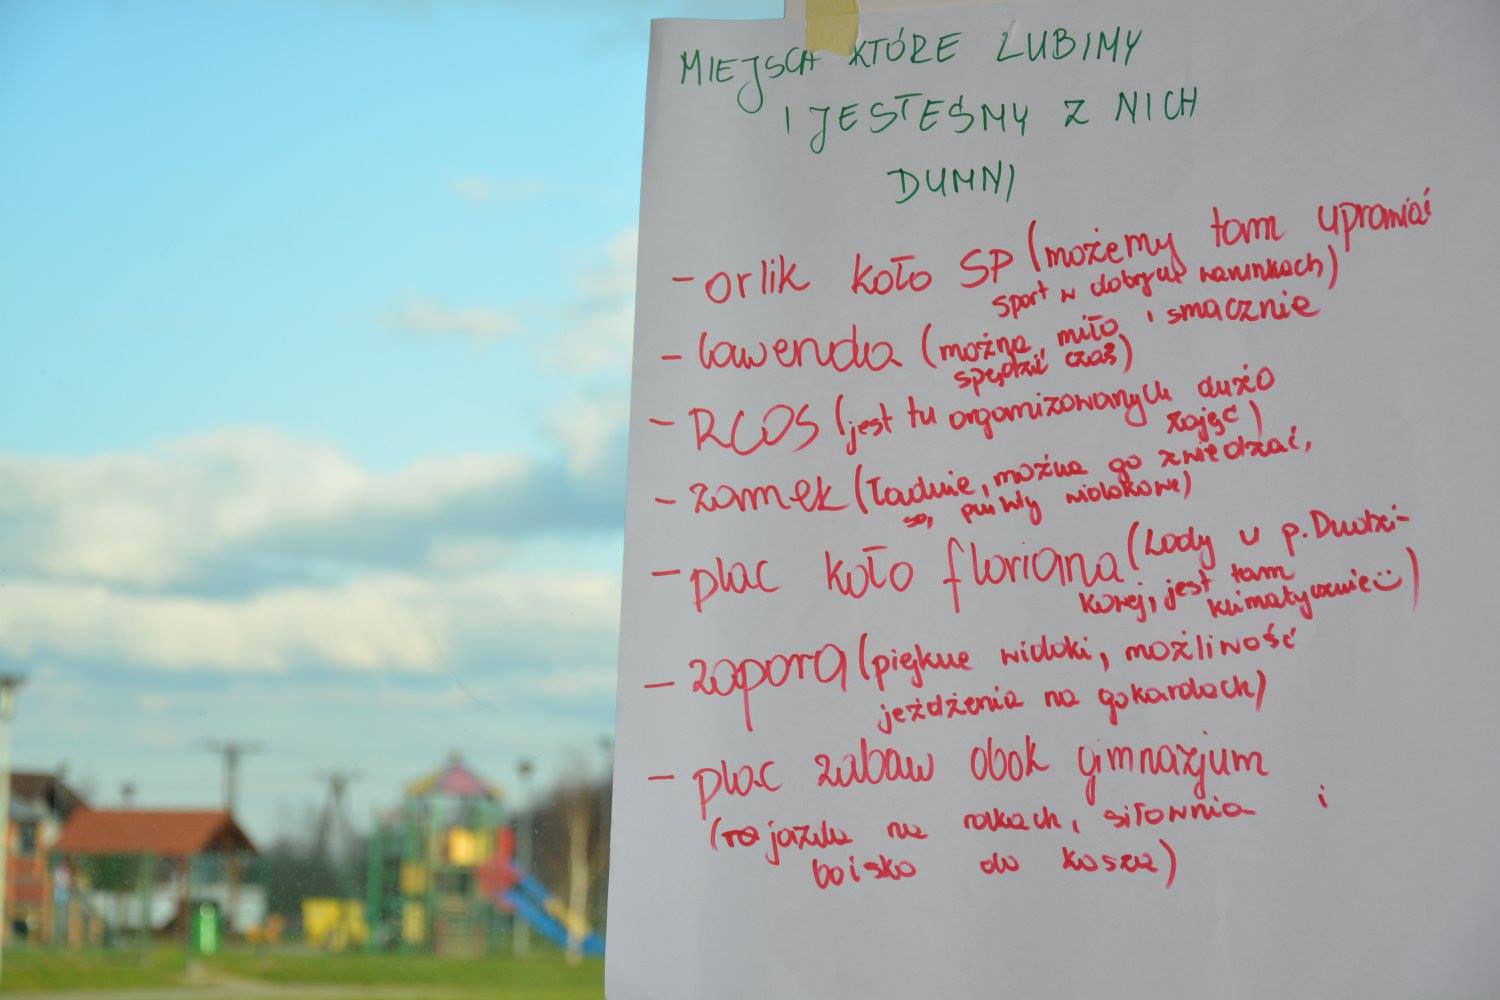 MIEJSCA KTÓRE LUBIMY
I JESTEŚMY Z NICH
DUMNI
- orlik koło SP (możemy tam uprawiać
sport w dobrych warunkach)
- lawenda (można miło i smacznie
spędzić czas)
- RCOS (jest tu organizowanych dużo
zajęć)
- zamek (ładnie, można go zwiedzać,
są punkty widokowe)
- plac koło floriana (Lody u p.
korej, jest tam
klimatycznie)
- zapora (piękne widoki, możliwość
jeżdżenia na gokardach)
- plac zabaw obok gimnazjum
(jazda na rolkach, siłownia i
boisko do kosza)